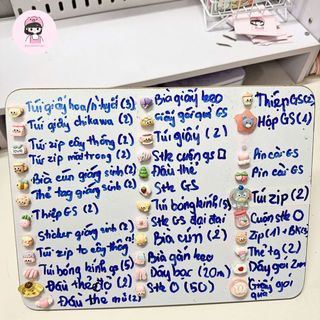 Túi giấy hoa/nơ tuyết (3)
Túi giấy chikawa (2)
Túi zip cây thông (2)
Túi zip mặt trong (2)
Bìa cứn giáng sinh (2)
Thẻ tag giáng sinh (2)
Thiệp GS (2)
Sticker giáng sinh (2)
Túi zip to cây thông
Túi bóng kính gs (5)
Đầu thẻ đỏ (2)
Đầu thẻ mũ (2)
Bìa giấy kẹo
Giấy gói quà GS
Túi giấy (2)
Stk cuộn gs □
Đầu thẻ
Stk GS
Túi bóng kính (5)
Stk GS dài dài
Bìa cứn (2)
Bìa gắn kẹo
Dây bạc (20m)
Stk O (50)
Thiệp GS (2)
Hộp GS (1)
Pin cài GS
Pin cài GS
Túi zip (2)
Cuộn stk O
Zip (1)
Thẻ tg (2)
Dây gói 2m
Giấy gói quà